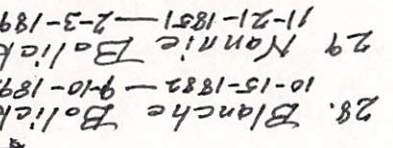 28. Blanche Bolick
10-15-1882 — 9-10-189
29 Nannie Bolick
11-21-1851 — 2-3-189